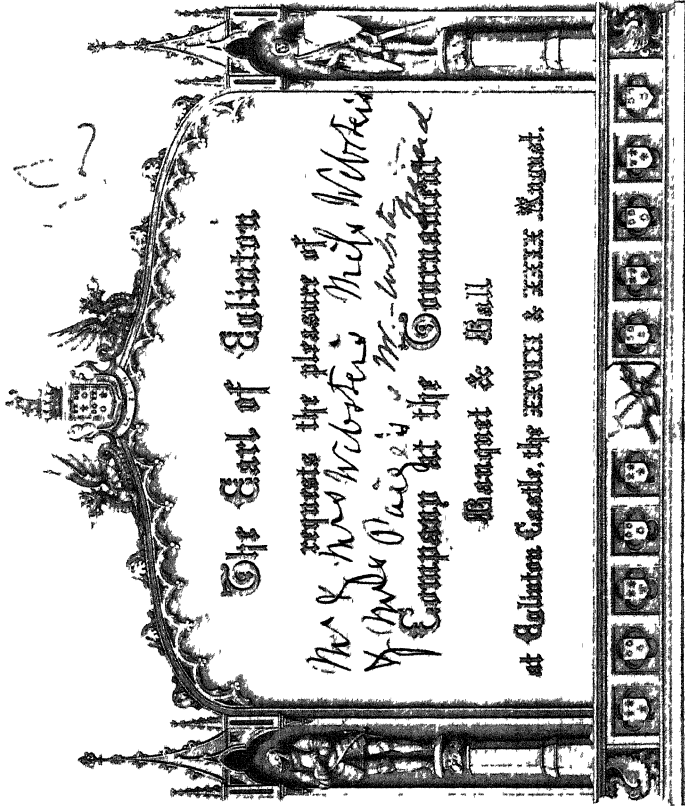 The Earl of Eglinton
requests the pleasure of
Mr & Mrs Webster's Miss Webster's
& Mrs Paige's
Company at the Tournament
Banquet & Ball
at Eglinton Castle, the XXVIII & XXIX August.